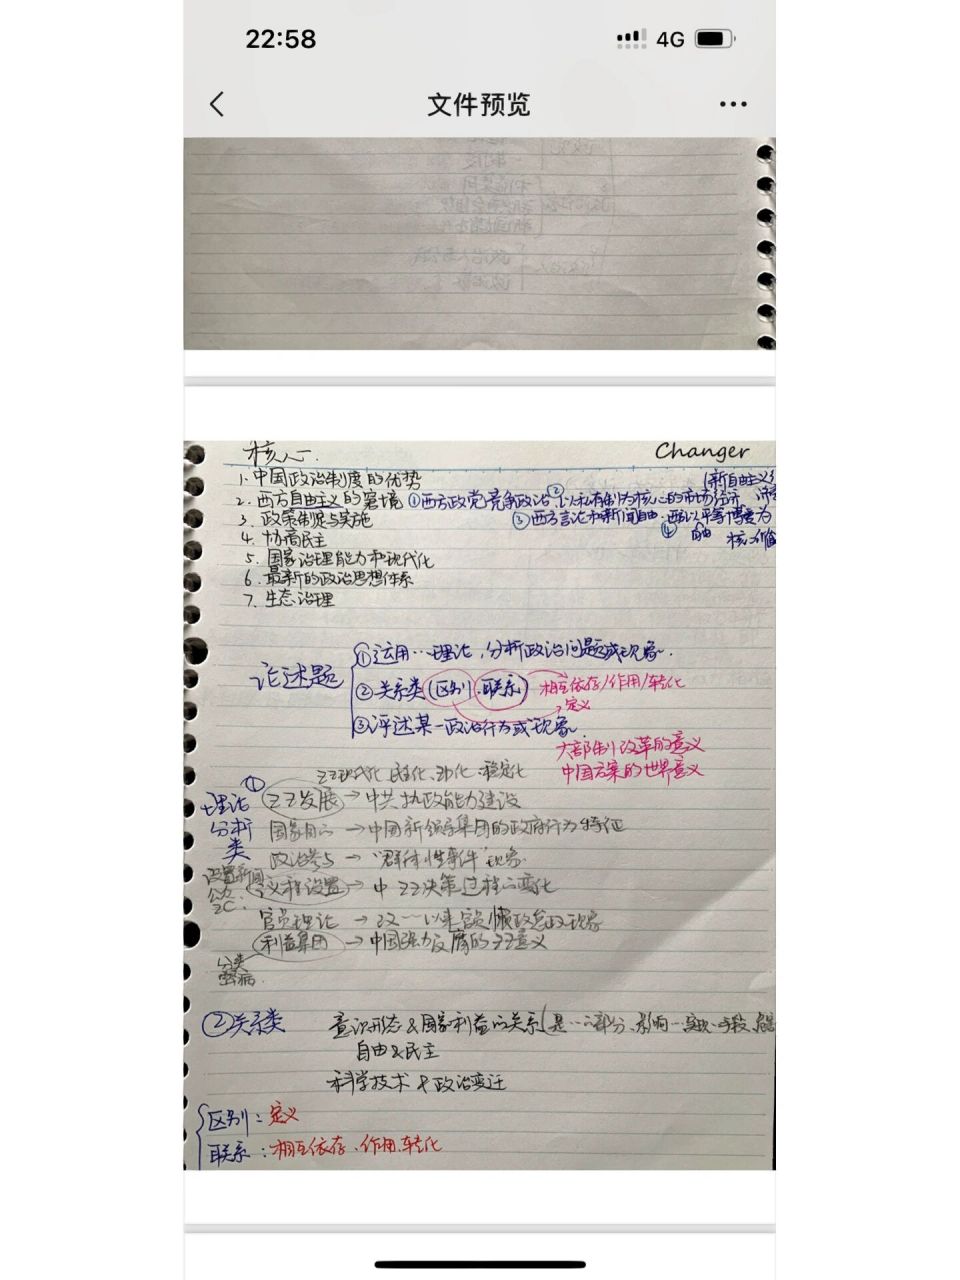 22:58
4G
文件预览
核心
Changer
1. 中国政治制度的优势
(新自由主义
2. 西方自由主义的窘境 ①西方政党竞争政治 ②以私有制为核心的市场经济
3. 政策制定与实施
③西方言论和新闻自由
④
自由
4. 协商民主
5. 国家治理能力和现代化
6. 最新的政治思想体系
7. 生态治理
论述题
①运用…理论,分析政治问题或现象.
②关系类(区别 联系) 相互依存/作用/转化
定义
③评述某一政治行为或现象
大部制改革的意义
中国方案的世界意义
① ZZ现代化 民主化 稳定化
理论分析类
ZZ发展 → 中共执政能力建设
国家目的 → 中国新领导集团的政府行为特征
政治参与 → "群体性事件"现象
议程设置 → 中ZZ决策过程的变化
官员理论 →
利益集团 → 中国强力反腐的ZZ意义
分类
②关系类
意识形态&国家利益的关系(是…的部分、影响
自由&民主
科学技术&政治变迁
区别:定义
联系:相互依存、作用、转化